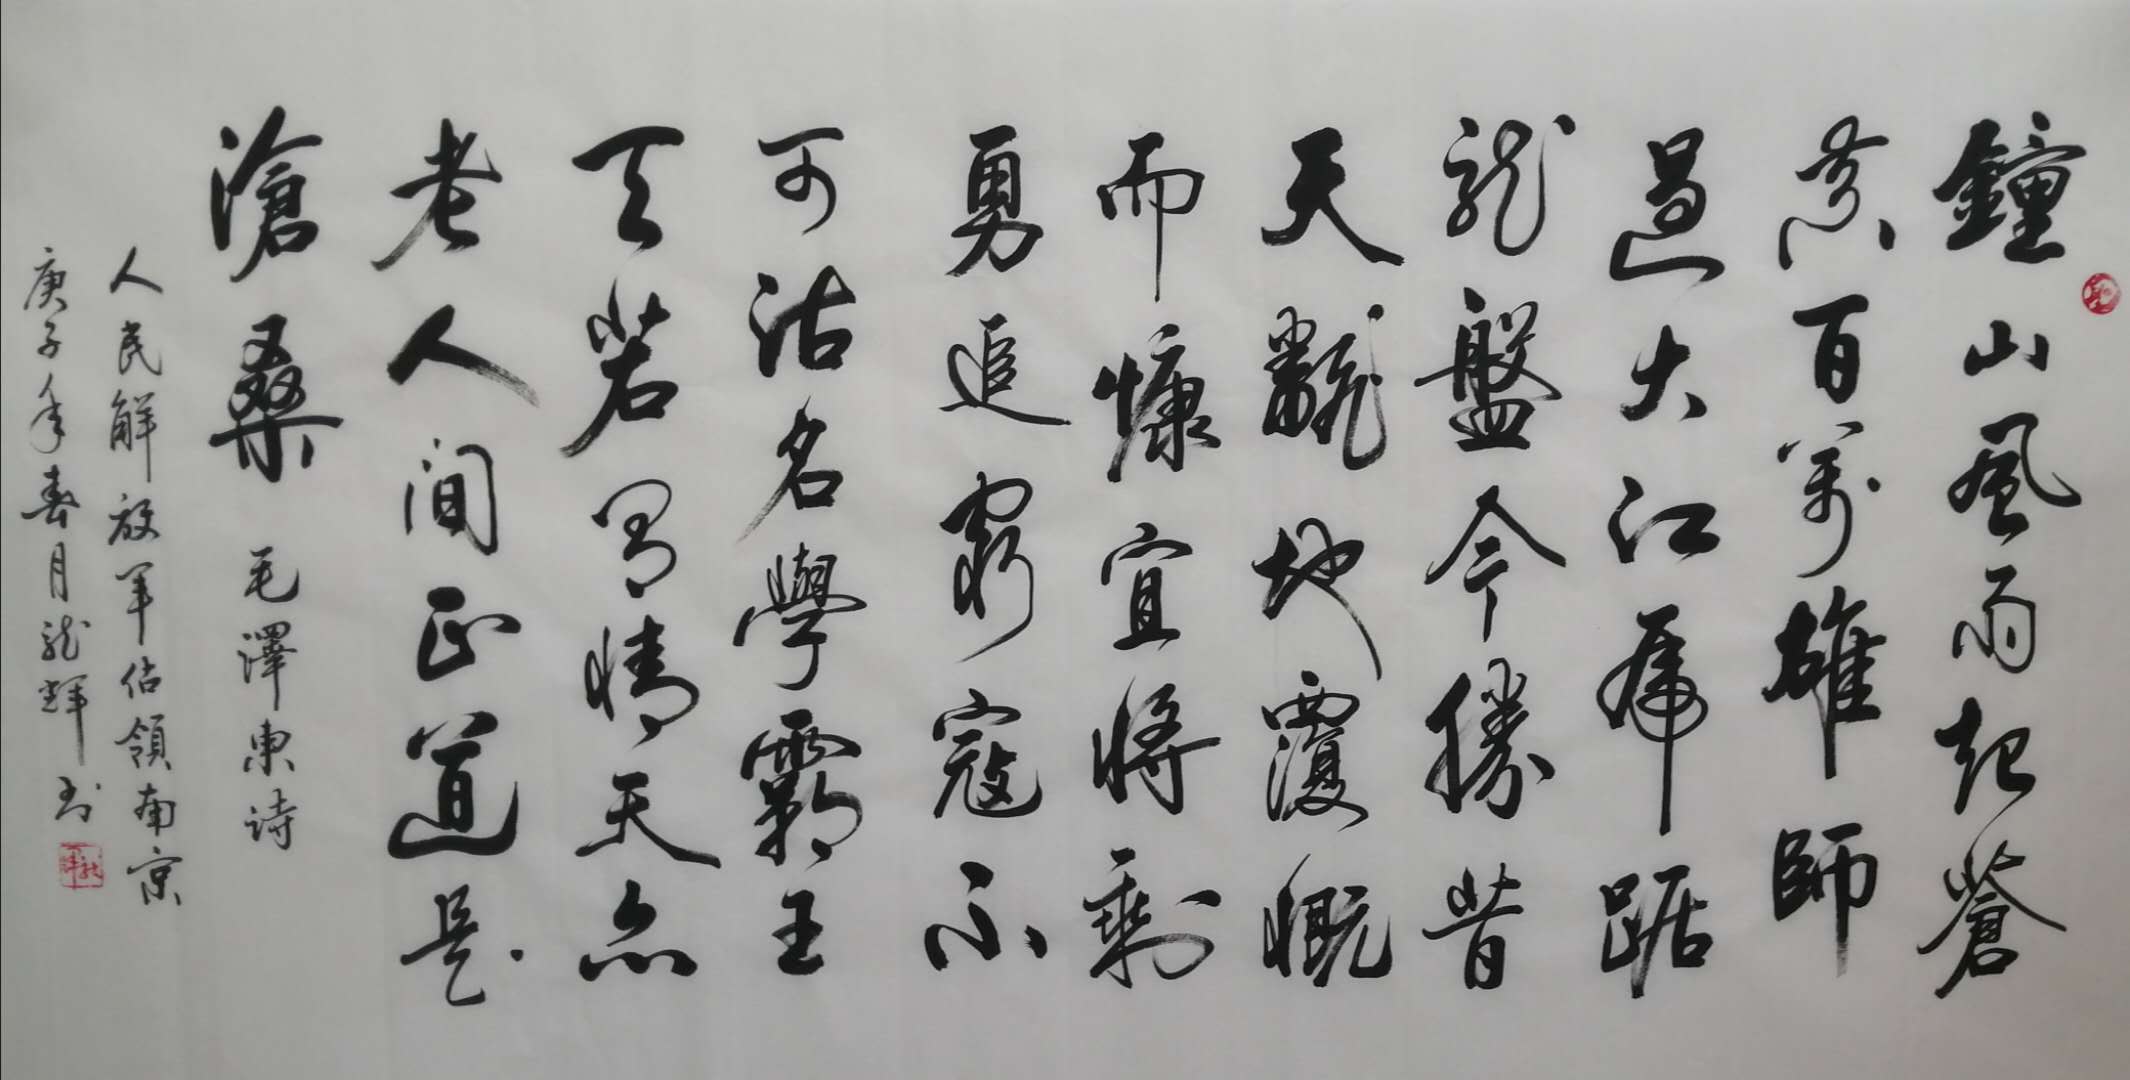 鐘山風雨起蒼
黃百萬雄師
過大江虎踞
龍盤今勝昔
天翻地覆慨
而慷宜將剩
勇追窮寇不
可沽名學霸王
天若有情天亦
老人間正道是
滄桑 毛澤東詩
人民解放軍佔領南京
庚子年春月龍輝书